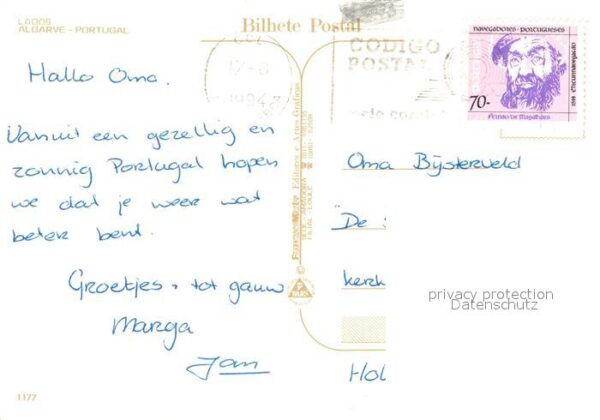 LAGOS
ALGARVE - PORTUGAL
Bilhete Postal
Hallo Oma.
Vanuit een gezellig en
zonnig Portugal hopen
we dat je weer wat
beter bent.
Groetjes + tot gauw
Marga
Jan
1177
1994
CODIGO
POSTAL
NAVEGADORES PORTUGUESES
1519 Circum-navegação
70-
Fernão de Magalhães
Oma Bijsterveld
"De
kerk
Hol
privacy protection
Datenschutz